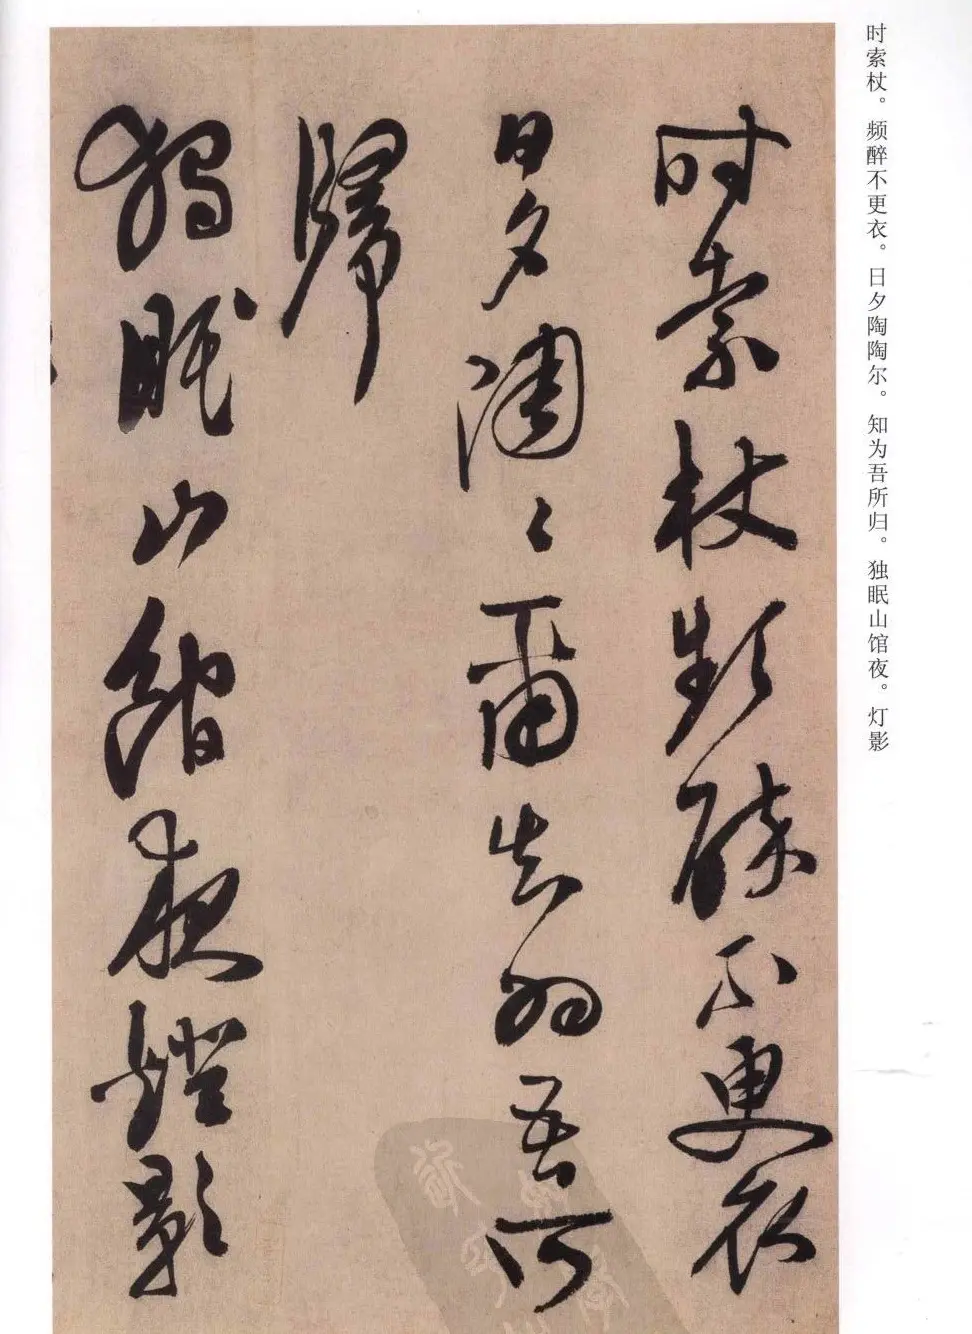 时索杖。频醉不更衣。日夕陶陶尔。知为吾所归。独眠山馆夜。灯影
时索杖頻醉不更衣
日夕陶〻爾知為吾所
歸
獨眠山館夜燈影